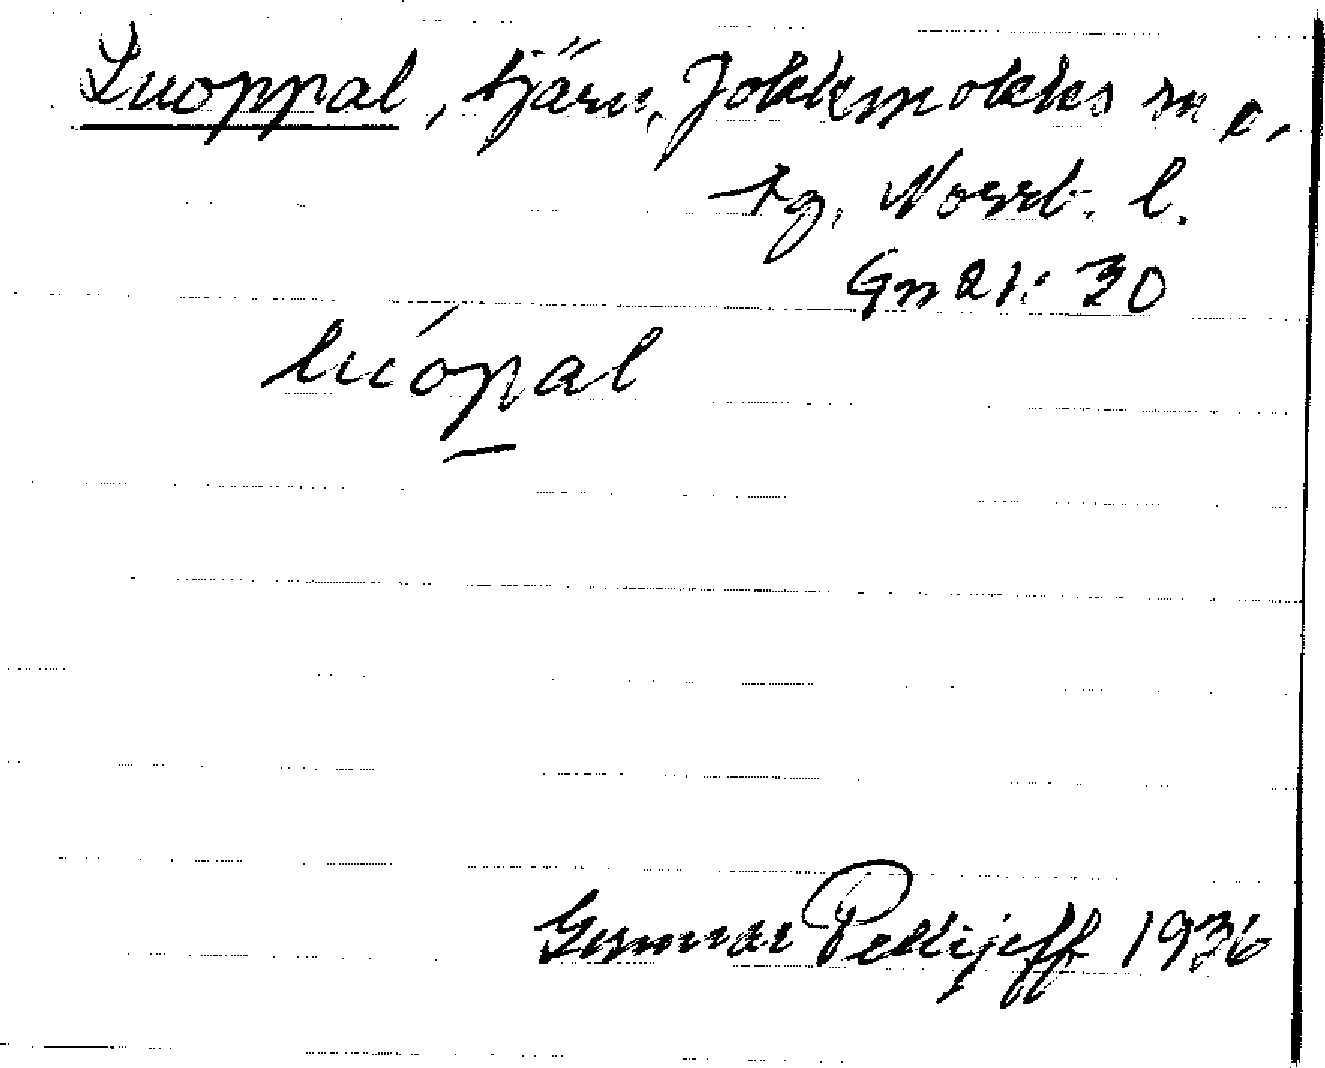 Luoppal, tjärn, Jokkmokks sn o.
tg, Norrb. l.
Gn 21: 30
luópal
Gunnar Pellijeff 1936